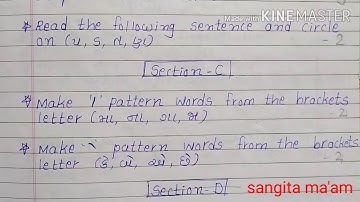 Made with KINEMASTER
* Read the following sentence and circle
on (પ, ડ, ત, ફા) - 2
Section-C
* Make 'ı' pattern words from the brackets
letter (મા, ના, ગા, જ) 2
* Make ` pattern words from the brackets
letter (કે, ચે, એ, છે) - 2
Section-D
sangita ma'am